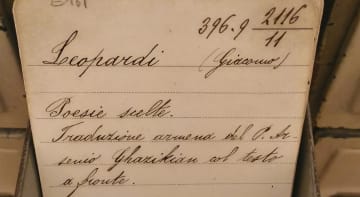 396.9 2116
11
Leopardi (Giacomo)
Poesie scelte.
Traduzione armena del P. Ar-
senio Ghazikian col testo
a fronte.